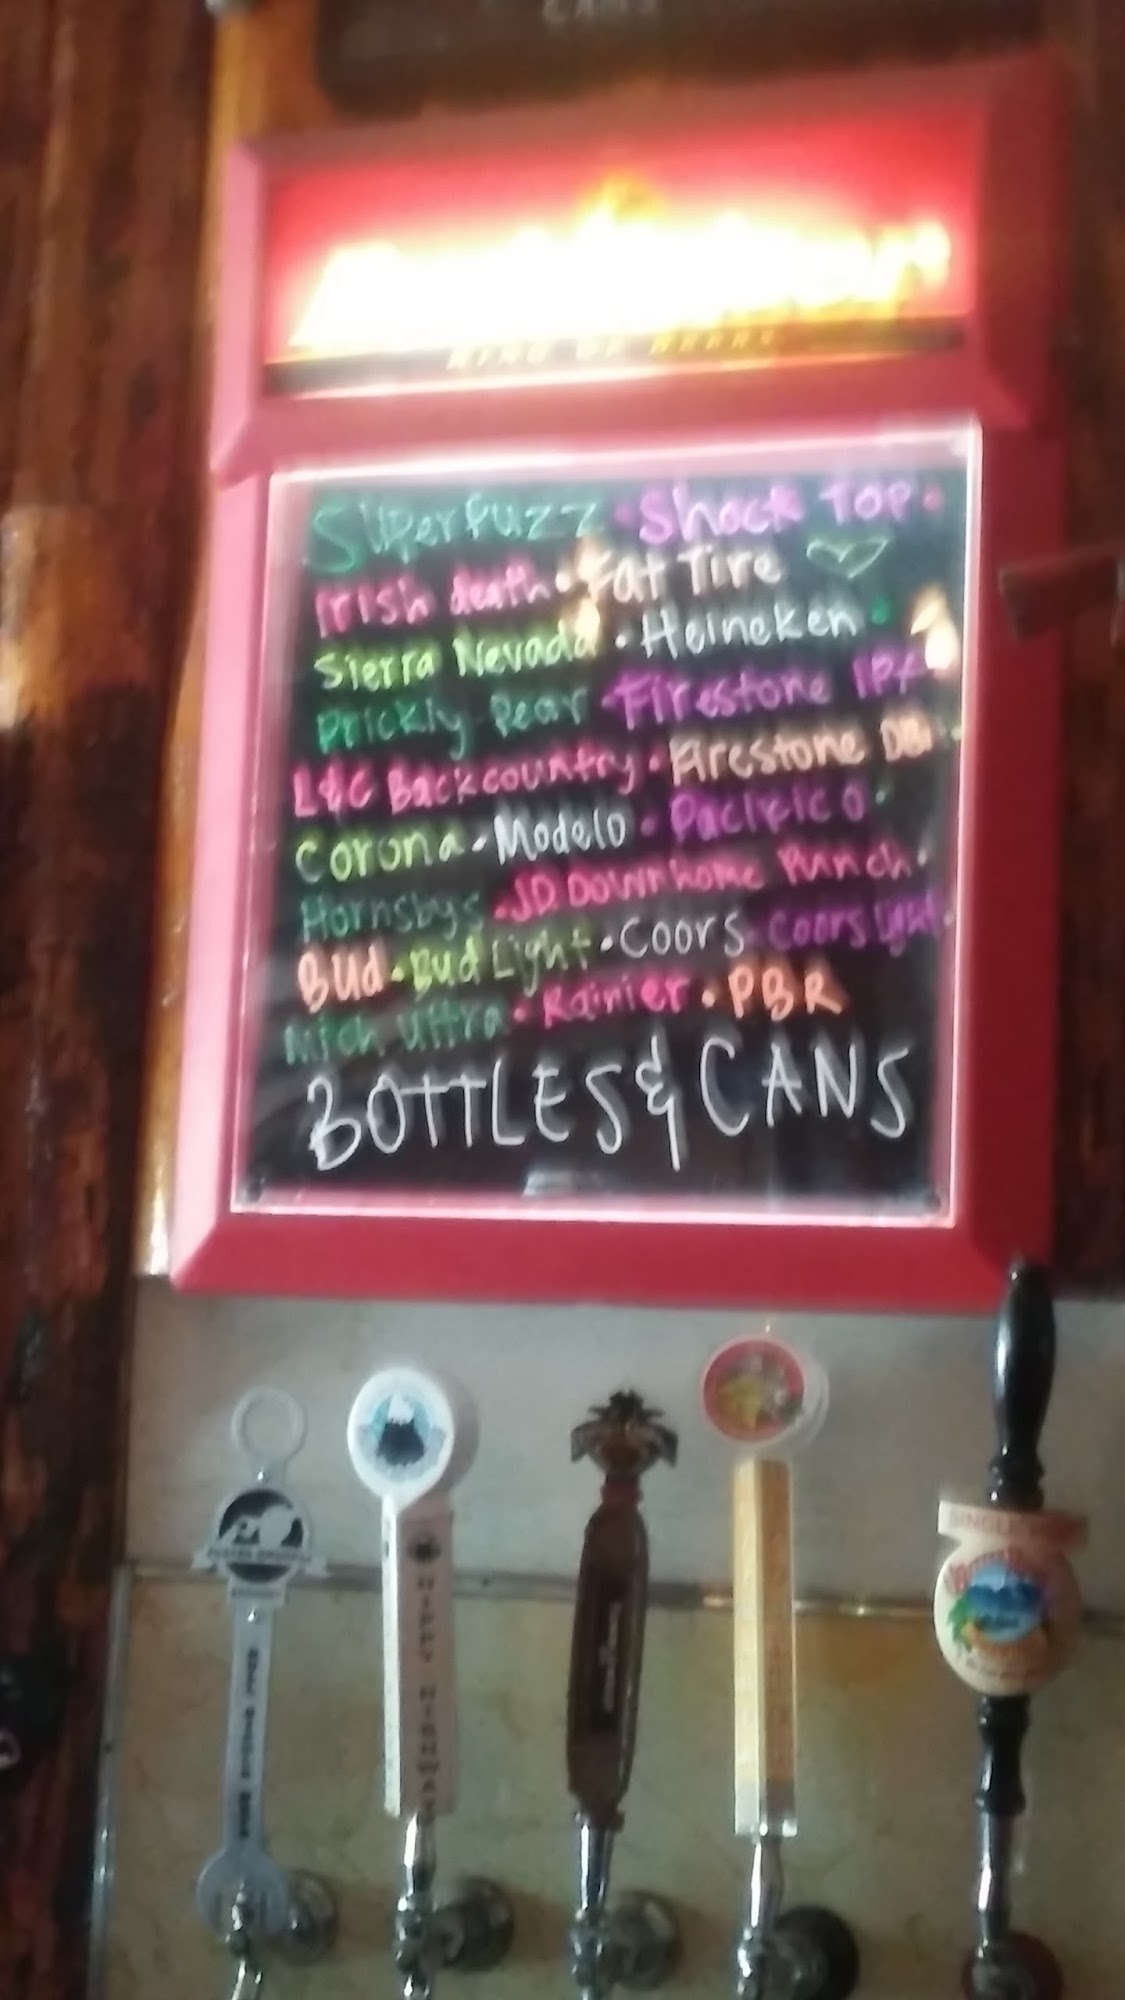 KING OF BEERS
Superfuzz · Shock Top ·
Irish death · Fat Tire
Sierra Nevada · Heineken ·
Prickly Pear · Firestone IPA
L&C Backcountry · Firestone DBA ·
Corona · Modelo · Pacifico ·
Hornsbys · JD Downhome Punch ·
Bud · Bud Light · Coors · Coors Light ·
Mich Ultra · Rainier · PBR
BOTTLES & CANS